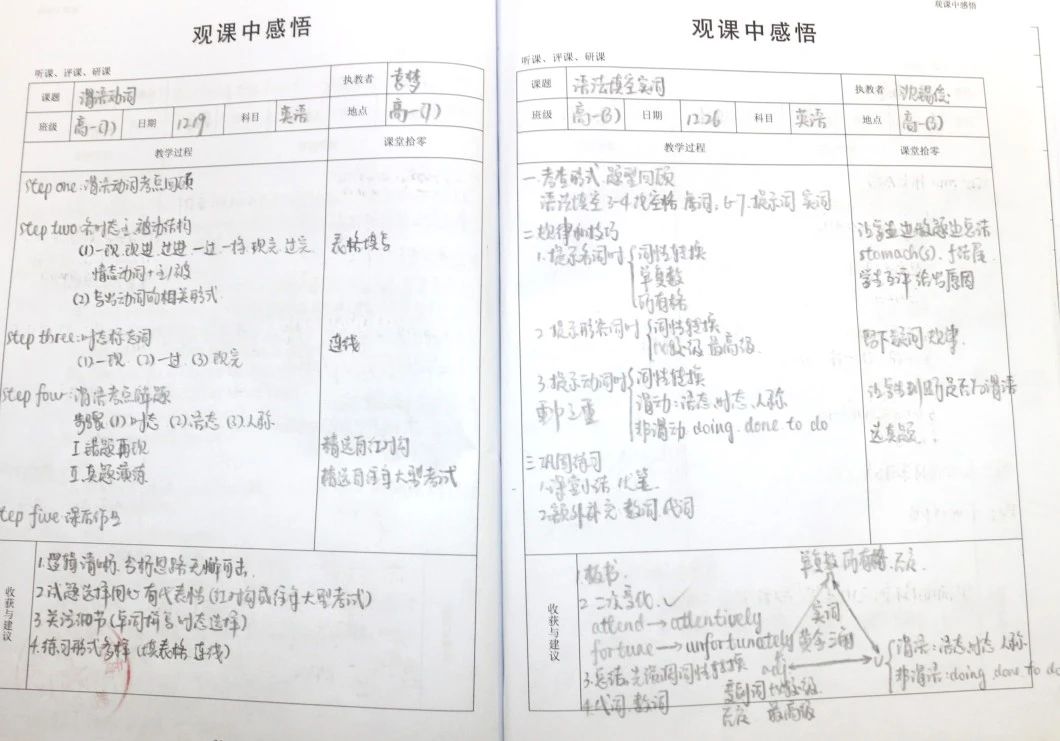 观课中感悟
听课、评课、研课
课题 谓语动词 执教者 袁梦
班级 高一(7) 日期 12.19 科目 英语 地点 高一(7)
教学过程 课堂拾零
step one:谓语动词考点回顾
step two:各时态主、被动结构
(1)一现.现进.过进.一过.一将.现完.过完 表格填写
情态动词+主/被
(2)写出动词的相关形式
step three:时态标志词 连线
(1)一现.(2)一过.(3)现完
step four:谓语考点解题
步骤(1)时态 (2)语态 (3)人称
I.错题再现 精选自红对勾
II.真题演练 精选自往年大型考试
step five:课后作业
收获与建议
1.逻辑清晰.分析思路无懈可击.
2.试题选择用心有代表性(红对勾或往年大型考试)
3.关注细节(单词拼写 时态选择)
4.练习形式多样(填表格 连线)
观课中感悟
观课中感悟
听课、评课、研课
课题 语法填空实词 执教者
班级 高一(3) 日期 12.26 科目 英语 地点 高一(3)
教学过程 课堂拾零
一.考查形式.题型回顾
语法填空3-4提空格 虚词;6-7.提示词 实词
二.规律和技巧 让学生边做题边总结
1.提示名词时 词性转换 stomach(s).
单复数 学生互评 给出原因
所有格
2.提示形容词时 词性转换
比较级 最高级
3.提示动词时 词性转换
重中之重 谓动:语态、时态、人称
非谓动 doing.done to do 选真题
三.巩固练习
1.课堂小结
2.额外补充 数词 代词
收获与建议
1.板书 单复数 所有格
2.二次变化
attend→attentively 实词
fortune→unfortunately 黄金三角
3.总结:先强调词性转换 adj v 谓语:语态 时态 人称
非谓语:doing done to do
4.代词.数词 最高级